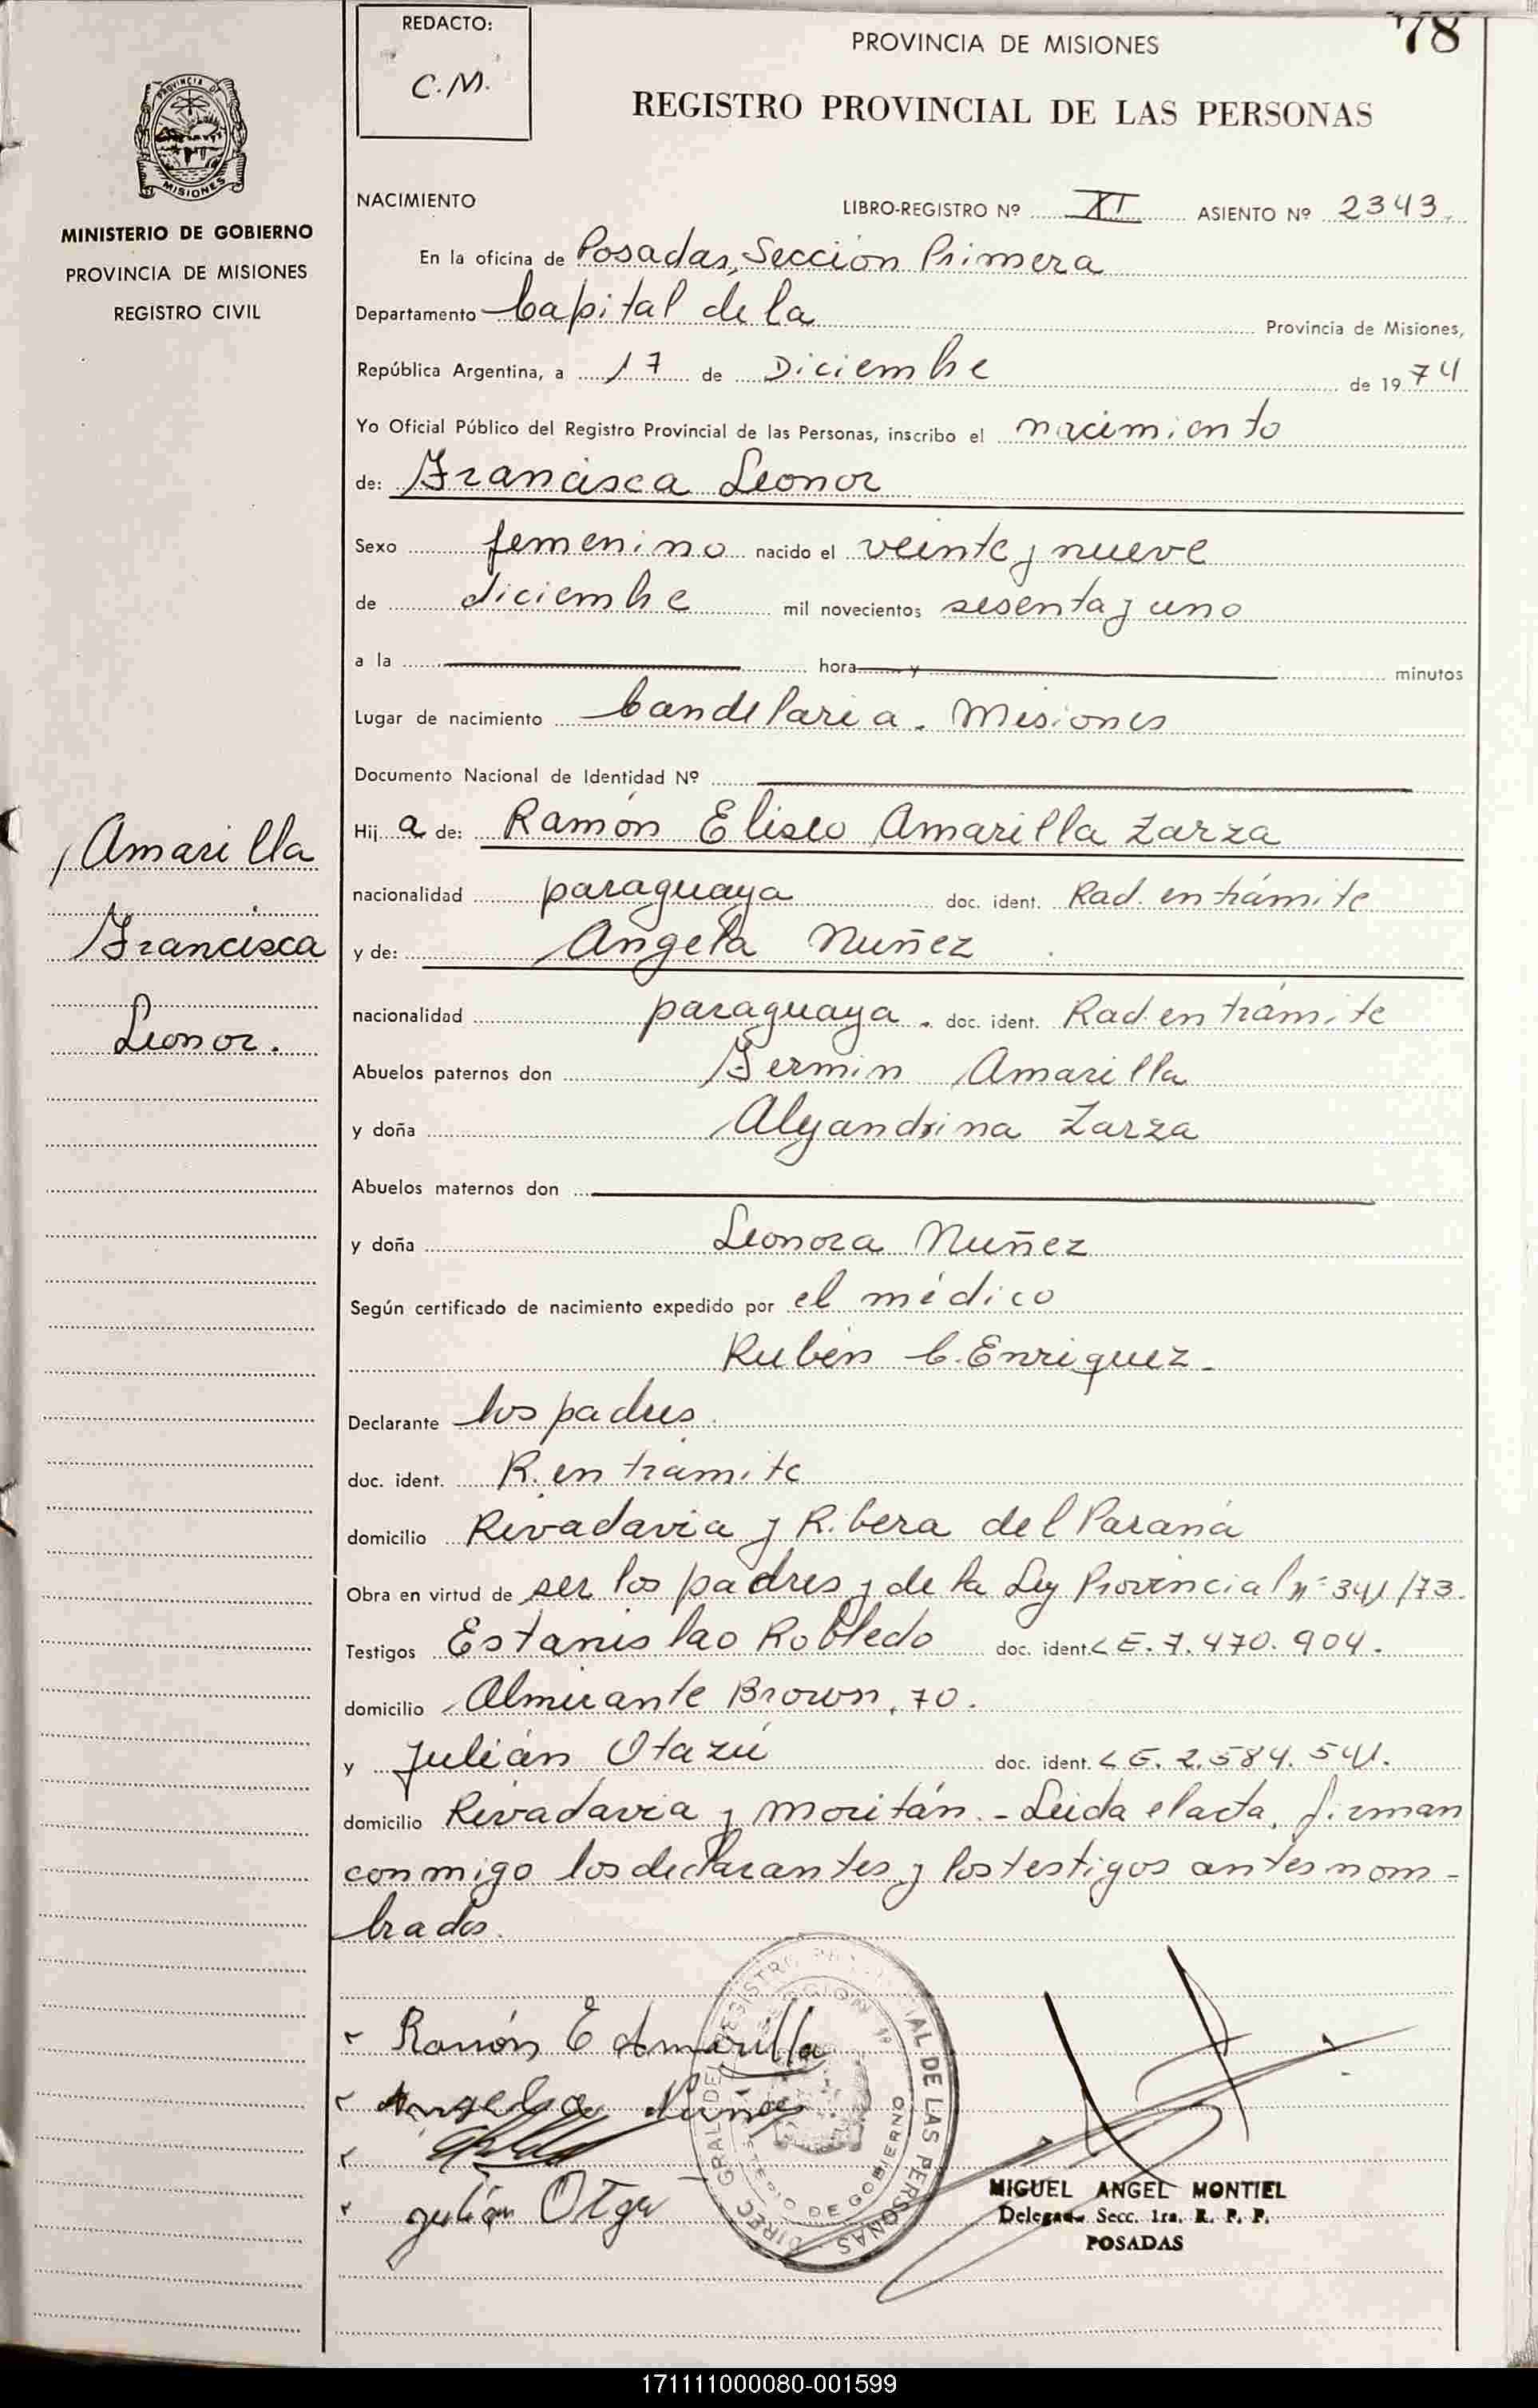 REDACTO:
C.M.
78
PROVINCIA DE MISIONES
REGISTRO PROVINCIAL DE LAS PERSONAS
PROVINCIA DE
MISIONES
MINISTERIO DE GOBIERNO
PROVINCIA DE MISIONES
REGISTRO CIVIL
NACIMIENTO
LIBRO-REGISTRO Nº XI ASIENTO Nº 2343.
En la oficina de Posadas, Sección Primera
Departamento Capital de la Provincia de Misiones,
República Argentina, a 17 de Diciembre de 1974
Yo Oficial Público del Registro Provincial de las Personas, inscribo el nacimiento
de: Francisca Leonor
Sexo femenino nacido el veinte y nueve
de diciembre mil novecientos sesenta y uno
a la hora y minutos
Lugar de nacimiento Candelaria. Misiones
Documento Nacional de Identidad Nº
Hij a de: Ramón Eliseo Amarilla Zarza
nacionalidad paraguaya doc. ident. Rad. en trámite
y de: Angela Nuñez
nacionalidad paraguaya. doc. ident. Rad. en trámite
Abuelos paternos don Fermin Amarilla
y doña Alejandrina Zarza
Abuelos maternos don
y doña Leonora Nuñez
Según certificado de nacimiento expedido por el médico
Rubén C. Enriquez.
Declarante los padres.
doc. ident. R. en trámite
domicilio Rivadavia y Ribera del Paraná
Obra en virtud de ser los padres y de la Ley Provincial nº 341/73.
Testigos Estanislao Robledo doc. ident. LE. 7.470.904.
domicilio Almirante Brown, 70.
y Julián Otazú doc. ident. LE. 2.584.541.
domicilio Rivadavia y Moritán. - Leida el acta, firman
conmigo los declarantes y los testigos antes nom-
brados.
Amarilla
Francisca
Leonor.
Ramón E Amarilla
Angela Nuñez
Julián
DIREC. GRAL. DEL REGISTRO PROVINCIAL DE LAS PERSONAS
SECCION 1ª
MINISTERIO DE GOBIERNO
MIGUEL ANGEL MONTIEL
Delegado Secc. 1ra. R. P. P.
POSADAS
171111000080-001599